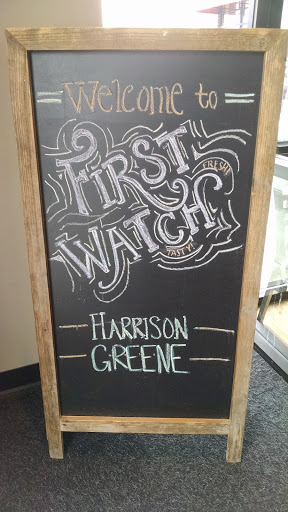 Welcome to
FIRST
FRESH!
WATCH
TASTY!
HARRISON
GREENE